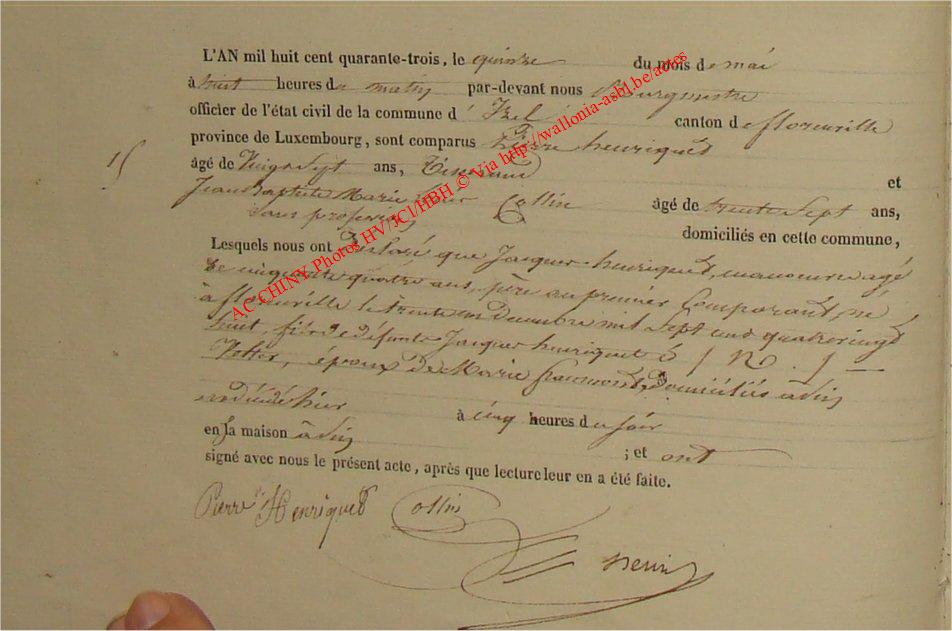 L'AN mil huit cent quarante-trois, le quinze du mois de mai
à huit heures du matin par-devant nous Bourgmestre
officier de l'état civil de la commune d'Izel canton de florenville
province de Luxembourg, sont comparus Pierre henriquet
15
âgé de Vingt Sept ans, Tisserand et
Jean Baptiste Marie Collin âgé de trente Sept ans,
Sans profession domiciliés en cette commune,
Lesquels nous ont déclaré que Jacques henriquet, manoeuvre agé
de cinquante quatre ans, père au premier Comparant, né
à florenville le trente un décembre mil Sept cent quatrevingt
huit, fils de défunts Jacques henriquet & / N. /
époux de Marie domiciliés à dit
est décédé hier à cinq heures du soir
en sa maison à dit ; et ont
signé avec nous le présent acte, après que lecture leur en a été faite.
Pierre Henriquet Collin
AC CHINY Photos HV/JCI/HBH © Via http://wallonia-asbl.be/actes